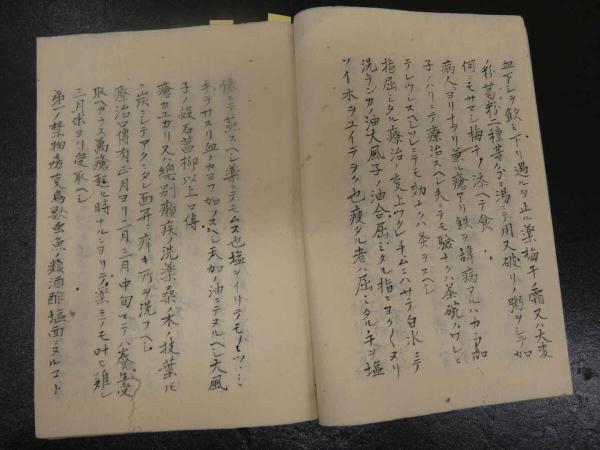 血下レヲ飲ミ下リ過ルヲ止ル薬梅干ノ霜又ハ大麦
ノ粉葛粉二種等分ニ湯ニテ用又破リノ粥ヲシテ
何ニモサマシ梅干ノ添ヘテ食
病人ヨリナヲリ兼ル瘡アリ鉄ヲ諱病アルハカミソ
子ノハリニテ療治スヘシ夫ニテモ験ナクハ茶碗ノワレヲ
テレウレスヘシソレニテモ功ナクハ蚤ヲスヘシ
指屈ミタル療治ノ支上ワクシナムニハサテ白水ニテ
洗テンカノ油大風子ノ油合屈ミタル指ニヨクヌリ
ソイ木ヲユイテヲク也痩タル者ハ屈ミタル手ヲ塩
俵ニテ蒸スヘシ薬ニテモムス也塩ヲイリテモノニツヽミ
手ヲサスリ血ノカヨフ如クスヘシ天加ノ油ニテヌルヘシ大風
子ノ殻石菖柳以上口傳
瘡カユカリ又ハ總別癩疾ノ洗薬桑ノ木ノ枝葉ヲ
炭ニシテアクニタレ面并ニ痒キ所ヲ洗フヘシ
療治口傳有正月ヨリ二月三月中旬マテハ養
取ヘカラス萬瘡起ル時ナルニヨリテ薬ニテモ叶ヒ難シ
三月末ヨリ受取ヘシ
第一ノ禁物房支鳥獣虫魚ノ類酒酢塩面ニヌルコト